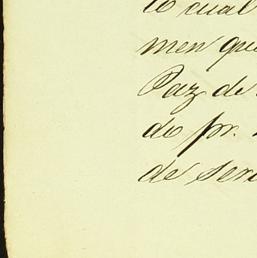 lo cual
men que
Paz de
do pr.
de ser